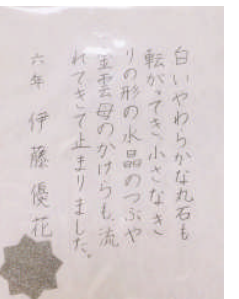 白いやわらかな丸石も
転がってき小さなきり
の形の水晶のつぶや
金雲母のかけらも、流
れてきて止まりました。
六年 伊藤優花